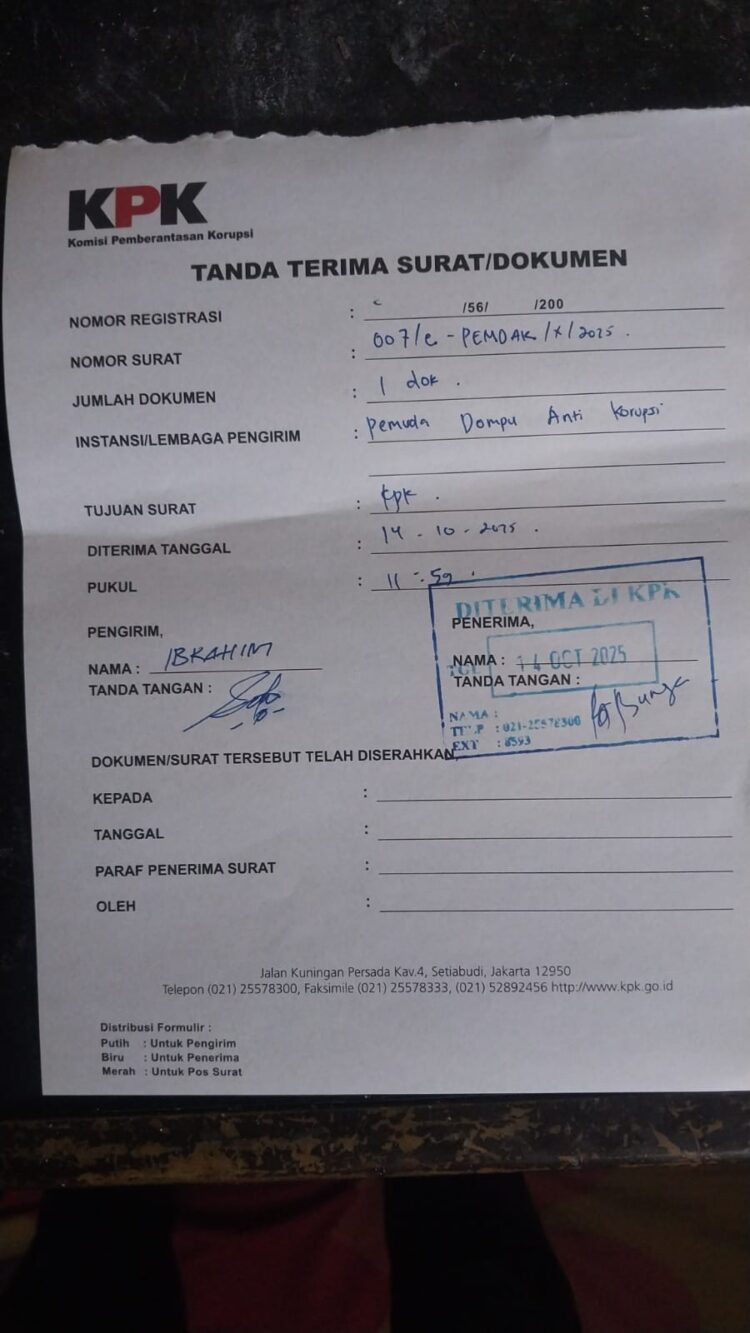 KPK
Komisi Pemberantasan Korupsi
TANDA TERIMA SURAT/DOKUMEN
NOMOR REGISTRASI : /56/ /200
NOMOR SURAT : 007/e - PEMDAK /X/ 2025 .
JUMLAH DOKUMEN : 1 dok .
INSTANSI/LEMBAGA PENGIRIM : Pemuda Dompu Anti Korupsi
TUJUAN SURAT : Kpk .
DITERIMA TANGGAL : 14 - 10 - 2025 .
PUKUL : 11 - 59 .
DITERIMA DI KPK
PENGIRIM,
PENERIMA,
NAMA : IBRAHIM
NAMA : 14 OCT 2025
TANDA TANGAN :
TANDA TANGAN :
NAMA :
TELP : 021-25578300
EXT : 8593
DOKUMEN/SURAT TERSEBUT TELAH DISERAHKAN
KEPADA :
TANGGAL :
PARAF PENERIMA SURAT :
OLEH :
Jalan Kuningan Persada Kav.4, Setiabudi, Jakarta 12950
Telepon (021) 25578300, Faksimile (021) 25578333, (021) 52892456 http://www.kpk.go.id
Distribusi Formulir :
Putih : Untuk Pengirim
Biru : Untuk Penerima
Merah : Untuk Pos Surat